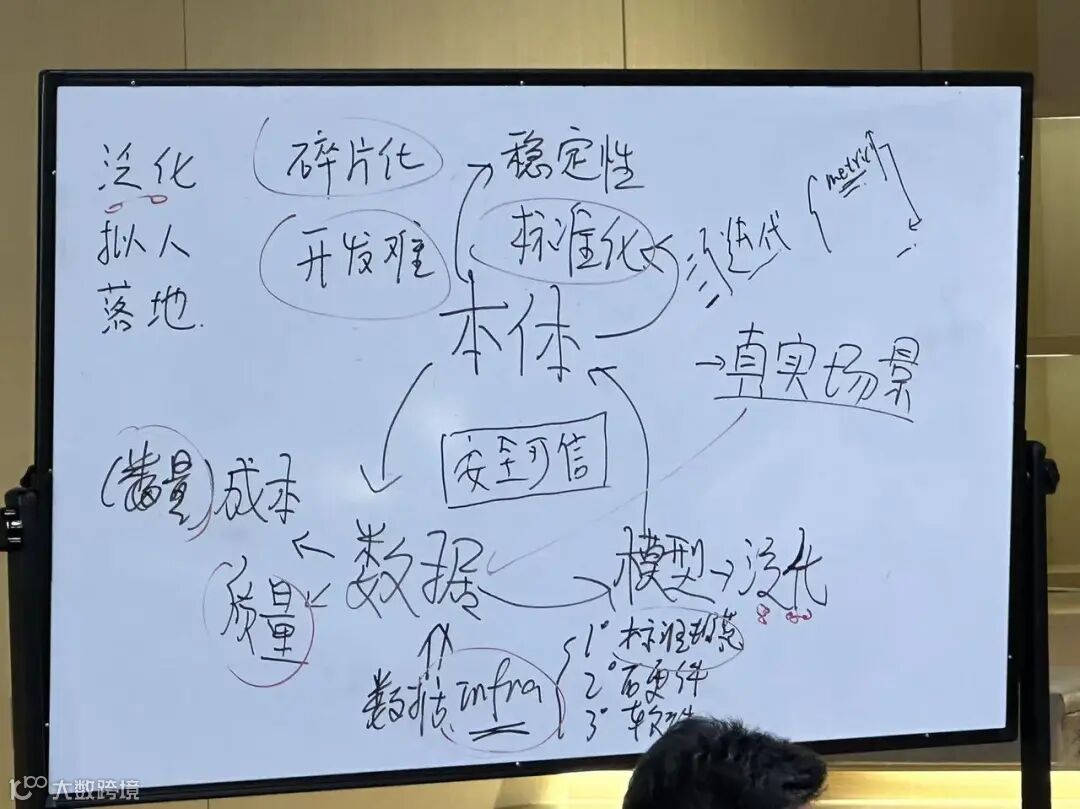 泛化
拟人
落地.
碎片化
开发难
稳定性
标准化
迭代
metric
本体
→真实场景
安全可信
(数量)成本
质量
数据
模型→泛化
数据infra
1° 标准规范
2° 硬件
3° 软件
大数跨境